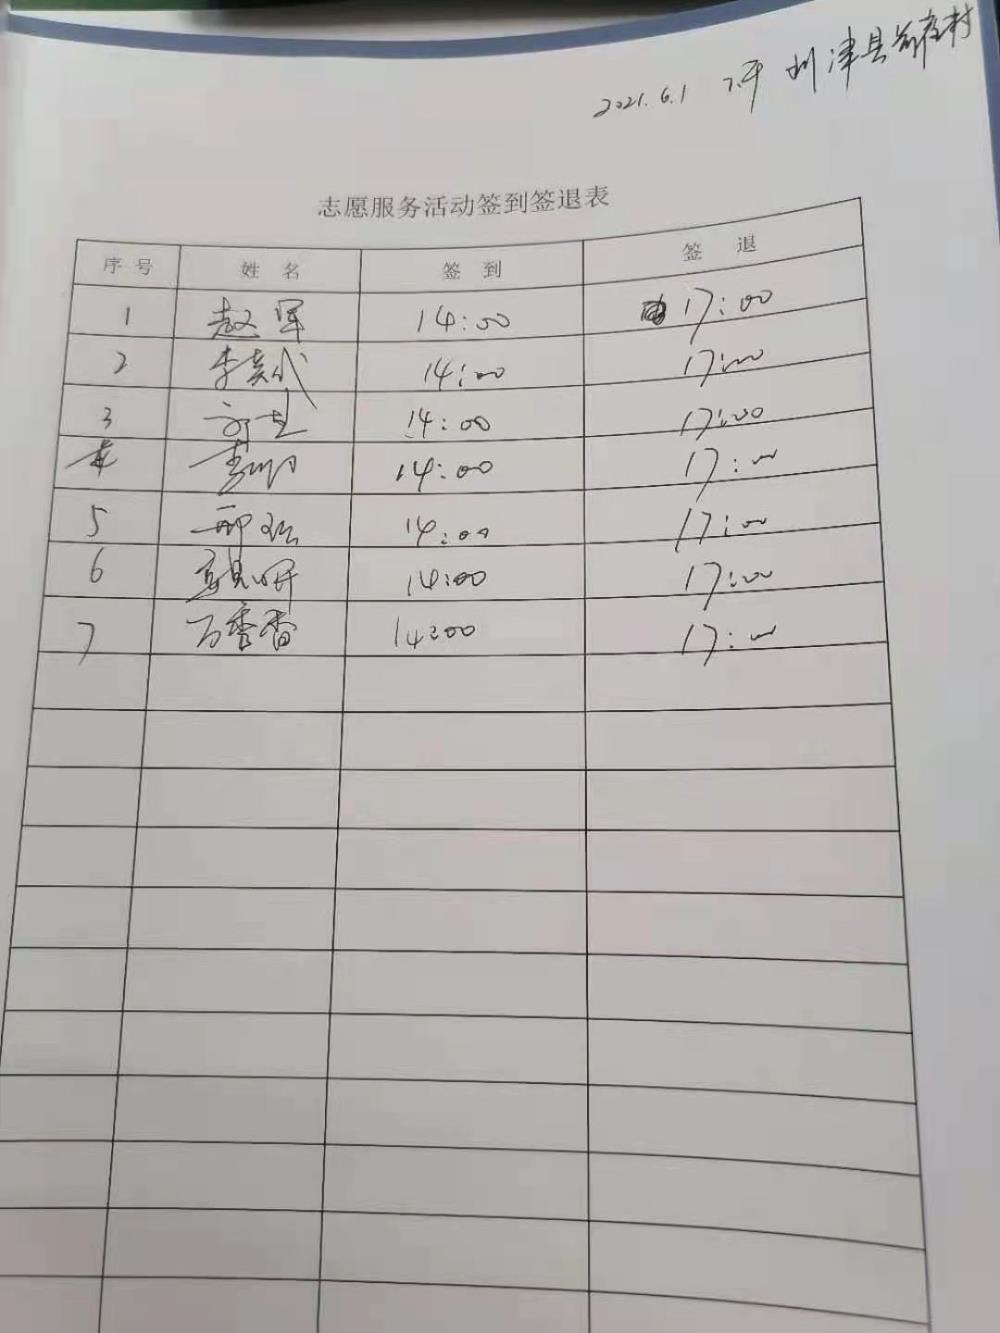 2021.6.1 下午 利津县前庄村
志愿服务活动签到签退表
序号 姓名 签到 签退
1 赵军 14:00 17:00
2 14:00 17:00
3 14:00 17:00
14:00 17:00
5 14:00 17:00
6 14:00 17:00
7 万秀香 14:00 17:00